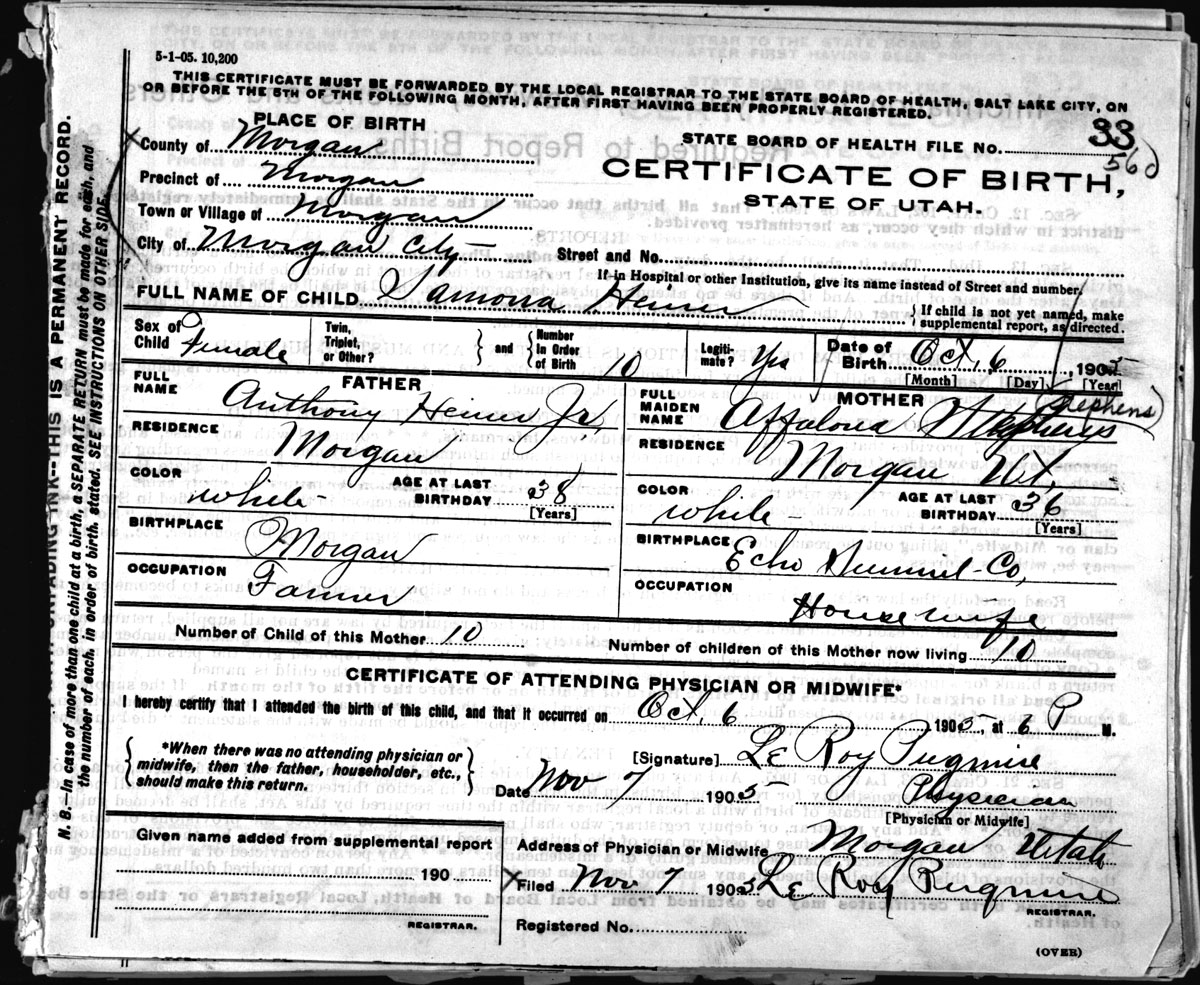 5-1-05. 10,200
THIS CERTIFICATE MUST BE FORWARDED BY THE LOCAL REGISTRAR TO THE STATE BOARD OF HEALTH, SALT LAKE CITY, ON
OR BEFORE THE 5TH OF THE FOLLOWING MONTH, AFTER FIRST HAVING BEEN PROPERLY REGISTERED.
PLACE OF BIRTH
STATE BOARD OF HEALTH FILE NO. 33
560
County of Morgan
CERTIFICATE OF BIRTH,
Precinct of Morgan
STATE OF UTAH.
Town or Village of Morgan
City of Morgan City
Street and No.
If in Hospital or other Institution, give its name instead of Street and number.
FULL NAME OF CHILD Heiner
If child is not yet named, make
supplemental report, as directed.
Sex of Child Female
Twin, Triplet, or Other?
and
Number in Order of Birth 10
Legitimate? Yes
Date of Birth Oct. 6, 1905
[Month] [Day] [Year]
FATHER
FULL NAME Anthony Heiner Jr.
RESIDENCE Morgan
COLOR white
AGE AT LAST BIRTHDAY 38
[Years]
BIRTHPLACE Morgan
OCCUPATION Farmer
MOTHER
(Stephens)
FULL MAIDEN NAME Affalona Stephens
RESIDENCE Morgan Ut.
COLOR white
AGE AT LAST BIRTHDAY 36
[Years]
BIRTHPLACE Echo Summit Co,
OCCUPATION
House wife
Number of Child of this Mother 10
Number of children of this Mother now living 10
CERTIFICATE OF ATTENDING PHYSICIAN OR MIDWIFE*
I hereby certify that I attended the birth of this child, and that it occurred on Oct. 6 1905, at 6 P M.
*When there was no attending physician or
midwife, then the father, householder, etc.,
should make this return.
[Signature] Le Roy Pugmire
Date Nov 7 1905
Physician
[Physician or Midwife]
Given name added from supplemental report
190
REGISTRAR.
Address of Physician or Midwife Morgan Utah
Filed Nov 7 1905 Le Roy Pugmire
REGISTRAR.
Registered No.
(OVER)
THIS IS A PERMANENT RECORD.
N. B.—In case of more than one child at a birth, a SEPARATE RETURN must be made for each, and
the number of each, in order of birth, stated. SEE INSTRUCTIONS ON OTHER SIDE.